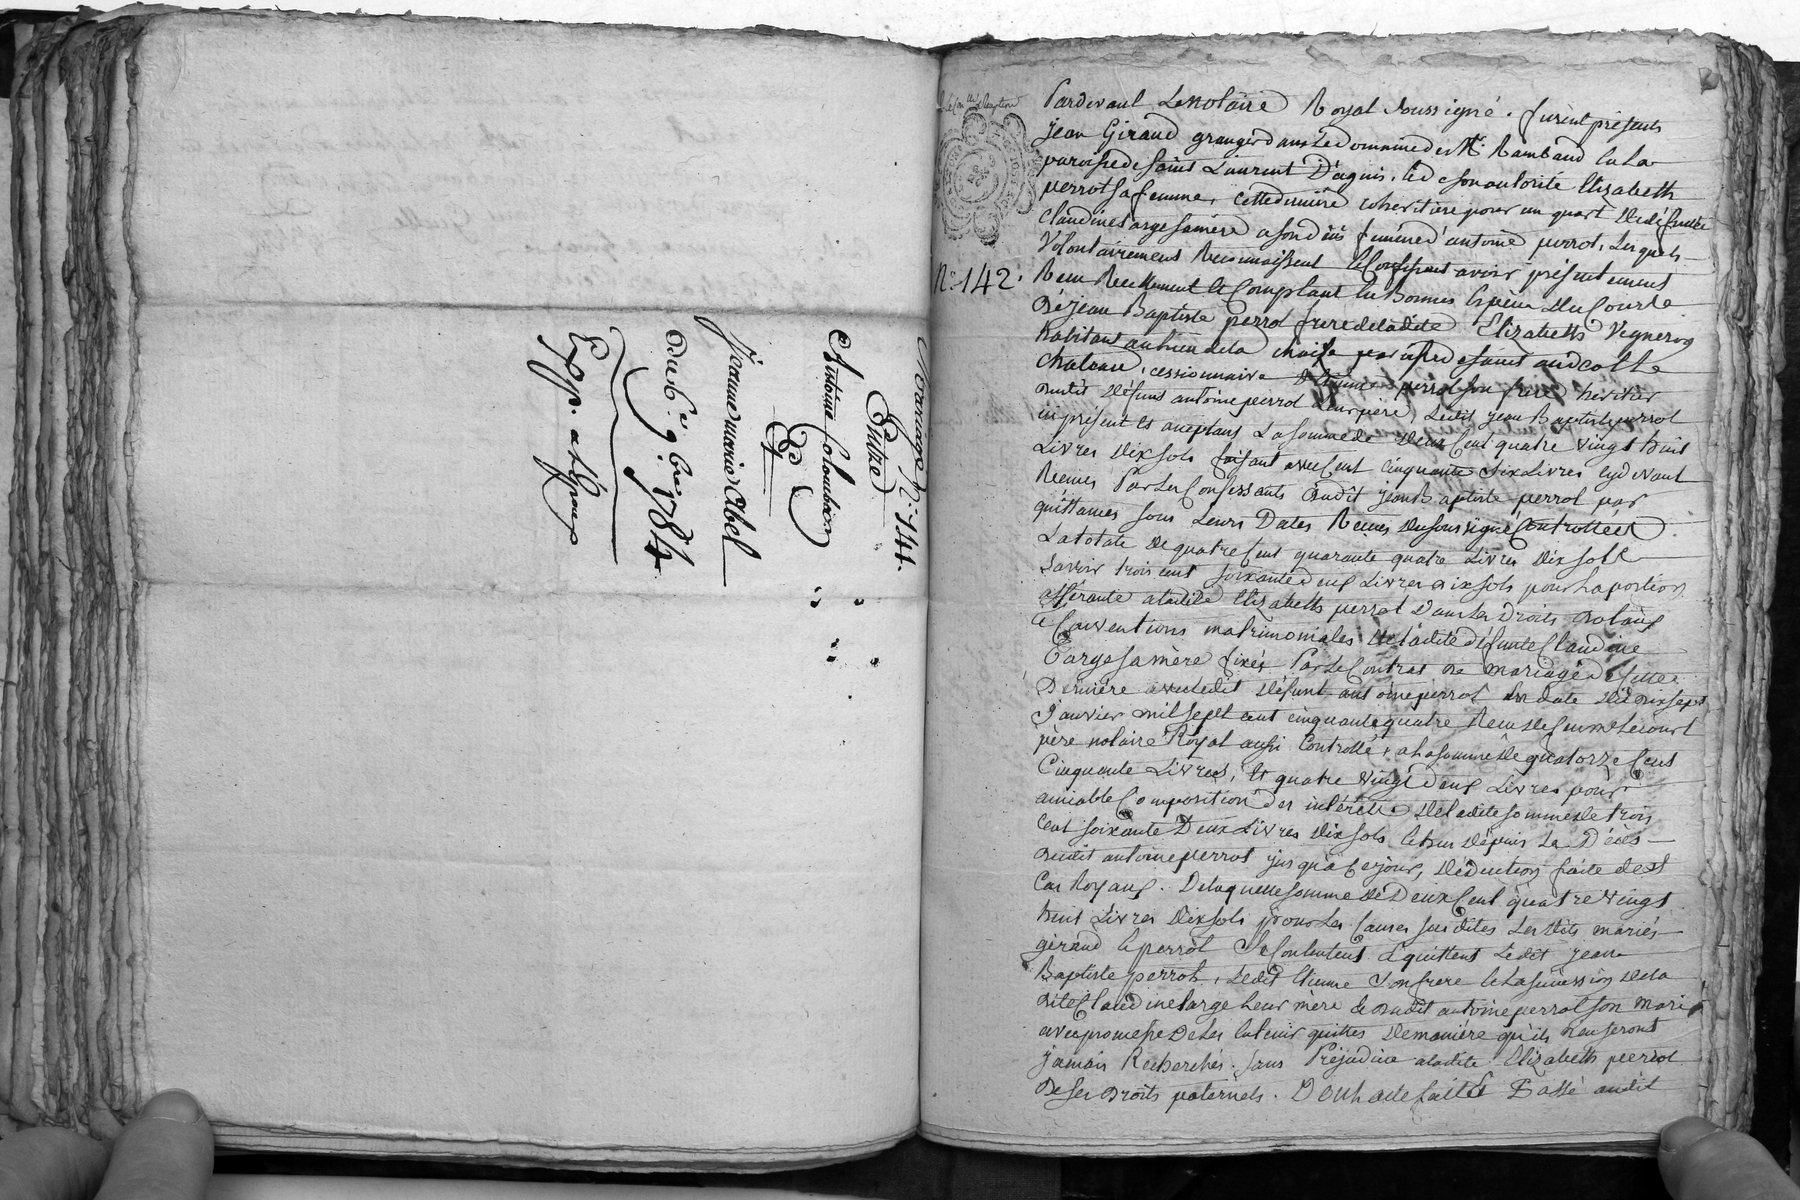 Mariage N.° 144.
Entre
Antoine Colombier
Et
Jeanne marie Abel
Du 6.e 9.bre 1784
Exp. a L'époux
N.° 142.
Pardevant Le notaire Royal soussigné. furent présents
jean Giraud granger dans Le Domaine de Mr. Rambaud en La
paroisse de saint Laurent D'agnis. et de son autorité Elizabeth
perrot sa femme, cette derniere coheritiere pour un quart de défunte
Claudine Large sa mère a son décès femme d'antoine perrot, Lesquels
Volontairement Reconnaissent et Confessent avoir présentement
Reçu Réellement et Comptant en Bonnes Espèces du Cours
De jean Baptiste perrot frere de ladite Elizabeth Vigneron
habitant au lieu de la chaise paroisse de saint andeol le
Chateau, cessionnaire d'Etienne perrot son frere heritier
dudit Défunt antoine perrot Leur père, Ledit jean Baptiste perrot
ici présent et acceptant La somme de Deux Cent quatre vingt huit
Livres Dix sols faisant avec Cent Cinquante six Livres cy devant
Reçues Par Les Confessants dudit jean Baptiste perrot par
quittances sous Leurs Dates Reçues du soussigné Controllées
La totale de quatre Cent quarante quatre Livres Dix sols
savoir trois cent soixante deux Livres dix sols pour La portion
afférante a ladite Elizabeth perrot Dans Les Droits dotaux
et Conventions matrimoniales de ladite défunte Claudine
Large sa mère fixés Par Le Contrat de mariage de Cette
Dernière avec ledit Défunt antoine perrot en date du dix sept
Janvier mil sept cent cinquante quatre Reçu de feu me Lecourt
père notaire Royal aussi Controllé, a La somme de quatorze Cent
Cinquante Livres, et quatre vingt deux Livres pour
amiable Composition des intérêts de ladite somme de trois
Cent soixante Deux Livres Dix sols échus dépuis Le Décès
dudit antoine perrot jusqu'à Ce jour, Déduction faite des
Cas Royaux. De laquelle somme de Deux Cent quatre vingt
huit Livres Dix sols pour Les Causes susdites Les dits mariés
giraud et perrot se Contentent et quittent Ledit jean
Baptiste perrot, Ledit Etienne son frere et La succession de la
dite Claudine Large Leur mère et dudit antoine perrot son mari
avec promesse De Les En tenir quittes De manière qu'ils n'en seront
jamais Recherchés. sans Préjudice a ladite Elizabeth perrot
De ses Droits paternels. Dont acte fait et Passé audit